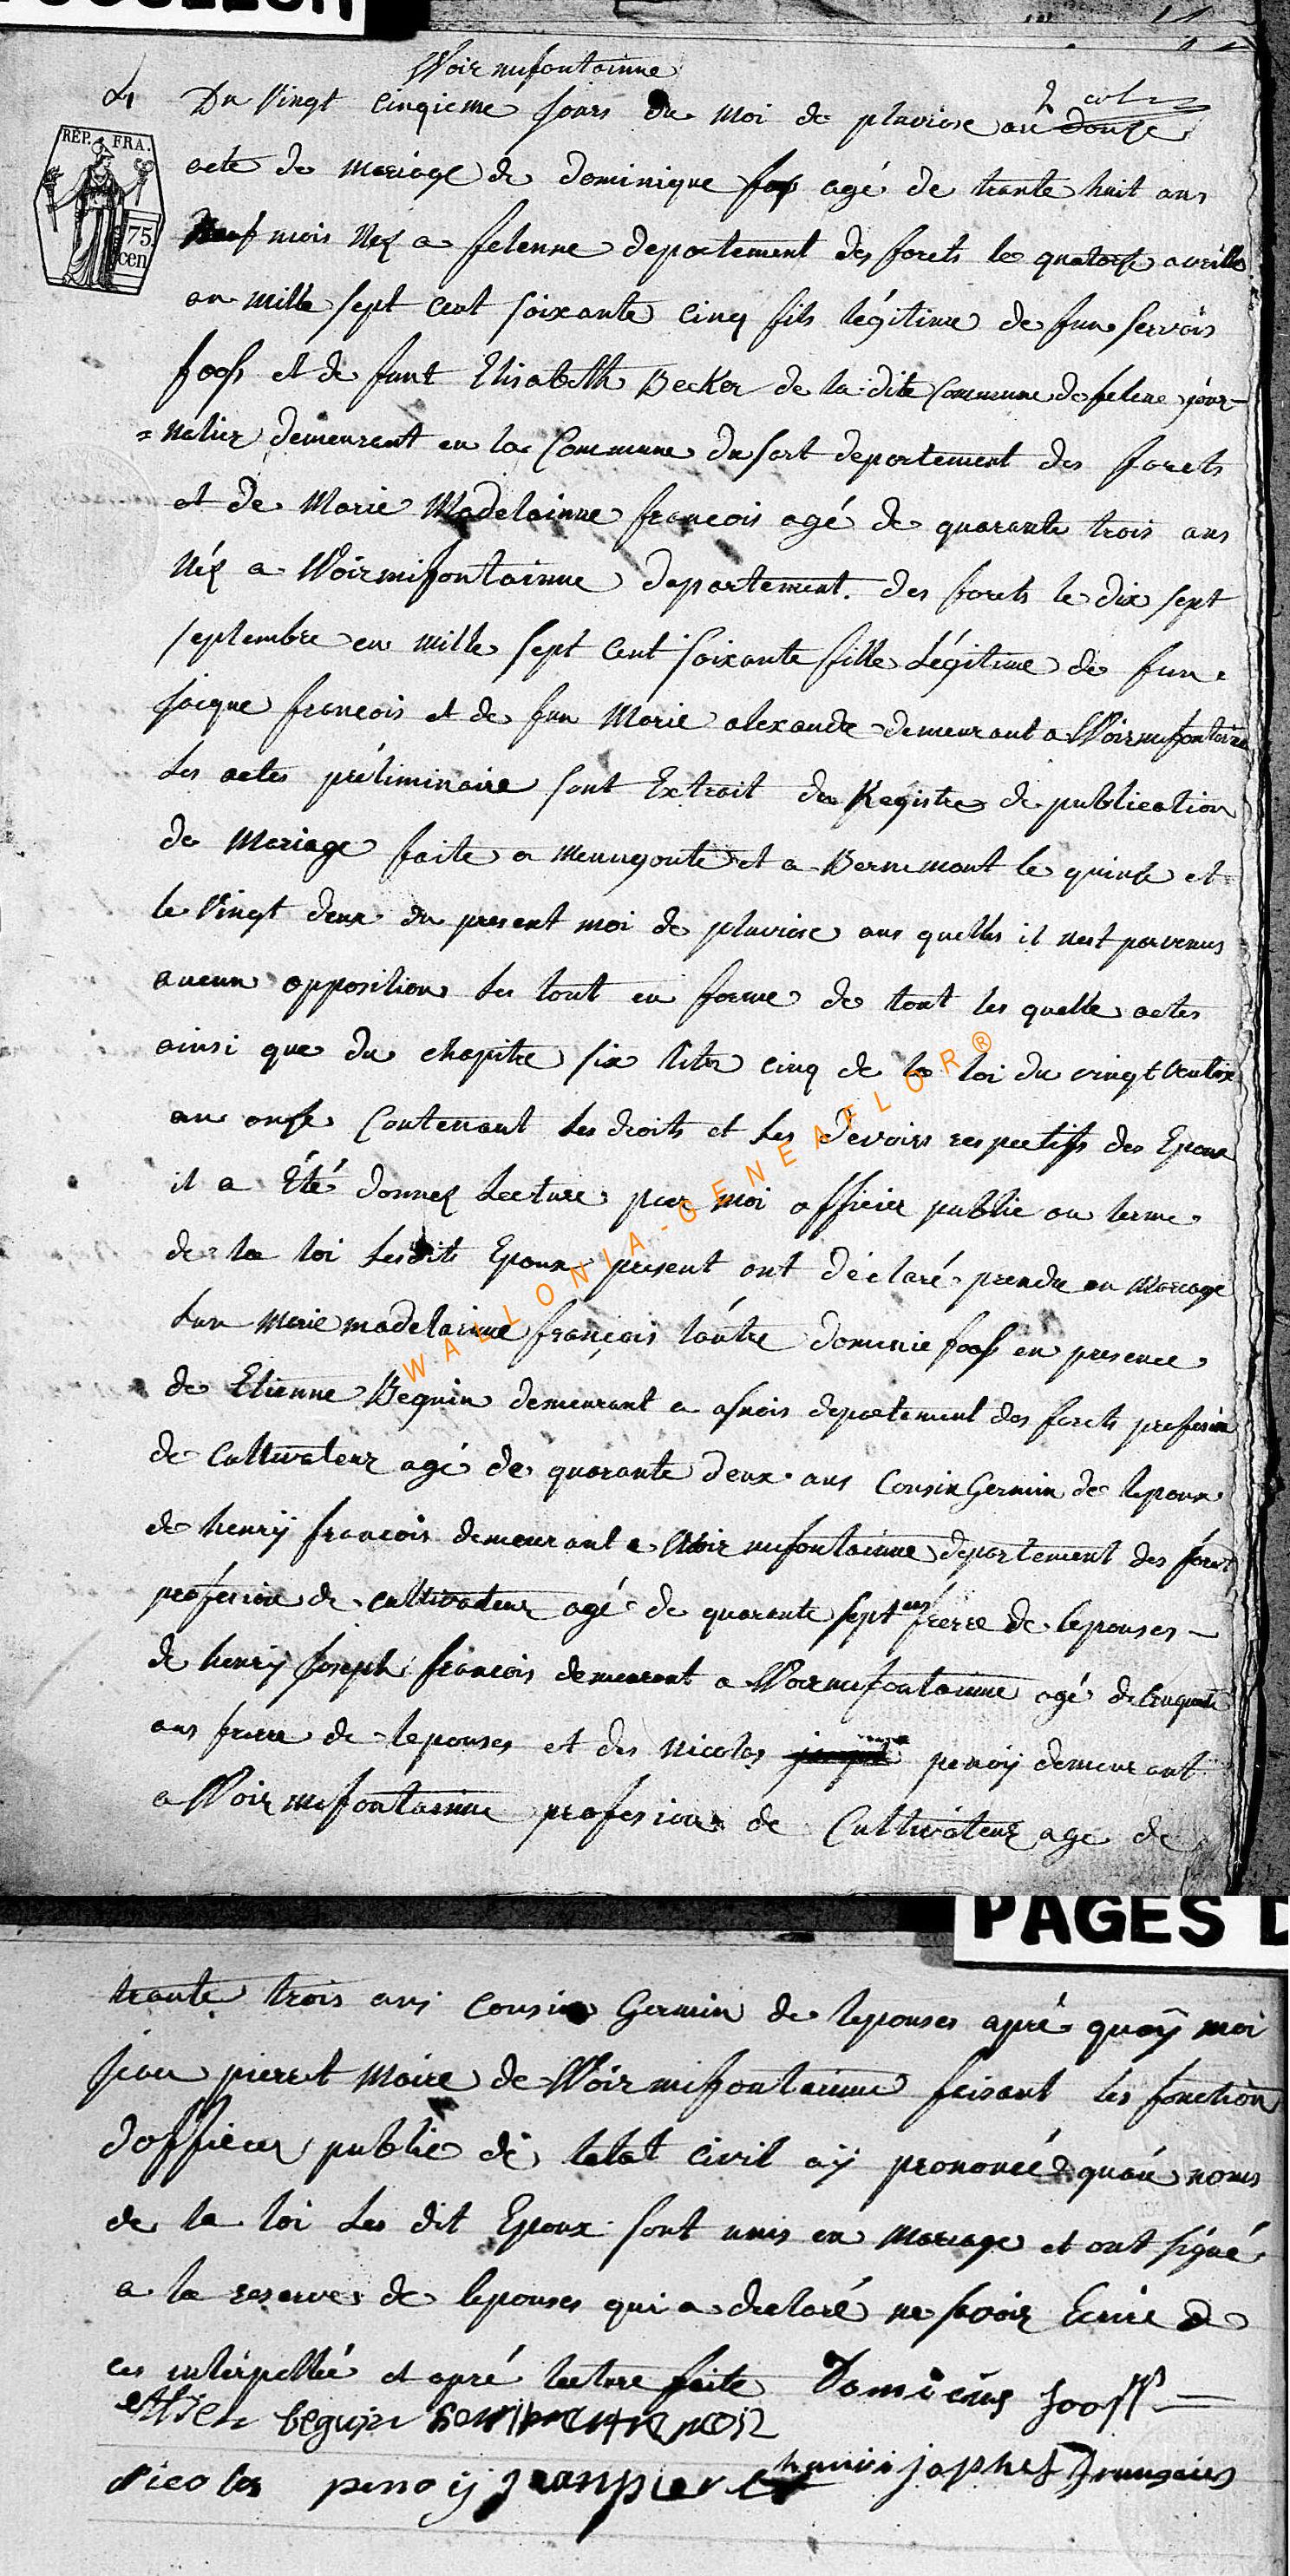 Woirmifontainne
Du Vingt Cinqieme Jours du moi de pluviose an douze
acte de Mariage de Dominique agé de trante huit ans
REP. FRA.
75 cen
neuf mois Nez a felenne departement des forets le quatorse avrille
an mille Sept Cent Soixante Cinq fils légitime de fun Servais
fooss et de funt Elisabeth Becker de la dite Commune de felene jour-
=nalier demeurant en la Commune du fort departement des forets
et de Marie Madelainne francois agé de quarante trois ans
Néz a Woirmifontainne departement. des forets le dix sept
septembre en mille sept Cent Soixante fille Légitime de fun
jacque francois et de fun Marie alexandre demeurant a Woirmifontaine
Les actes préliminaire sont Extrait du Registre de publication
de Mariage faite a mennugoute et a Bernimont le quinse et
le Vingt deux du present moi de pluviose aux quelles il nest parvenus
aucun opposition Le tout en forme de tout les quelle actes
ainsi que du chapitre six titre cinq de la loi du vingt Ventose
an onze Contenant Les droits et Les Devoirs respectifs des Epoux
il a Eté donnez Lecture par moi officier public au terme
de la loi Lesdits Epoux present ont déclaré prendre en Mariage
Lun Marie madelainne françois láutre dominie foos en presence
de Etienne Bequin demeurant a asnois departement des forets profesion
de Cultivateur agé de quarante deux ans Cousin Germin de lepoux
de henrÿ francois demeurant a Woirmifontainne departement des foret
profesion de cultivateur agé de quarante sept ans frerre de lepouses -
de henrÿ Joseph francois demeurant a Woirmifontainne agé de Cinquante
ans frerre de lepouses et des Nicolas penoÿ demeurant
a Woirmifontainne profesion de Cultivateur age de
WALLONIA-GENEAFLOR®
PAGES D
trante trois ans Cousin Germin de lepouses apré quoÿ moi
jean pierret Maire de Woirmifontainne faisant les fonction
dofficier public de letat civil aÿ prononcé quau noms
de la loi Les dit Epoux sont unis en Mariage et ont signé
a la reserve de lepouses qui a declaré ne savoir Ecrire de
ces interpellée et apré lecture faite Domicius fooss
ettien beguin
Nicolas penoÿ jean pierret hanri jophes franssois